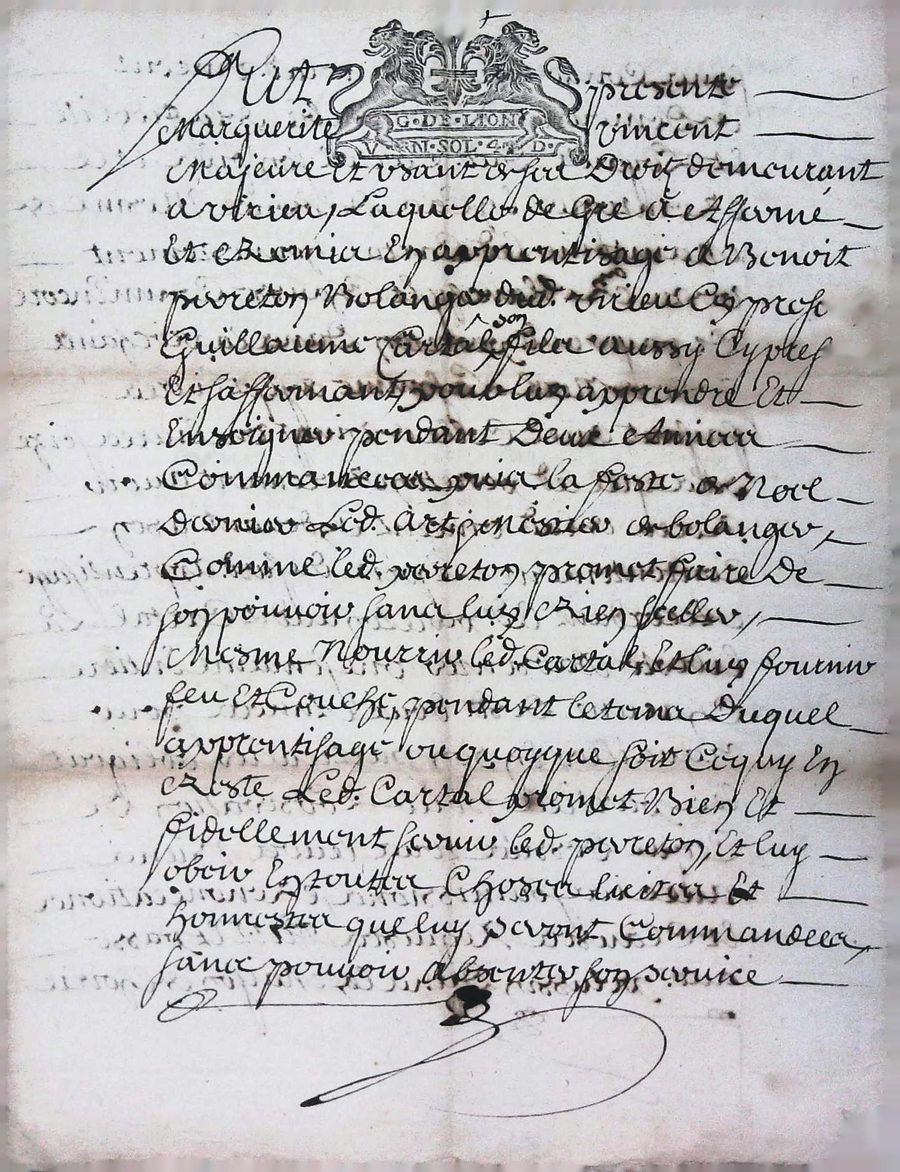 Fut presente
G·DE·LION
Marguerite Vincent
V RN·SOL·4 D·
Majeure et usant de ses Droitz demeurant
a virieu, Laquelle de Gré a affermé
Et Remis En apprentisage a Benoit
perreton Bolanger dud. virieu Cy prest
son
Guillaume Cartal, filz aussy Cy prest
Et saffermant, pour luy apprendre Et
Enseigner pendant Deux Annees
Commancees puis la feste de Noel
Dernier Led. art et Mestier de bolanger,
Comme led. perreton promet faire De
son pouvoir sans luy Rien Celler,
Mesme Nourrir led. Cartal, Et luy fournir
feu Et Couche, pendant le tems Duquel
apprentisage ou quoyque soit Ce quy En
Reste Led. Cartal promet Bien Et
fidellement servir led. perreton, Et luy
obeir En toutes Choses licites Et
honnestes que luy seront Commandees,
sans pouvoir absenter son service